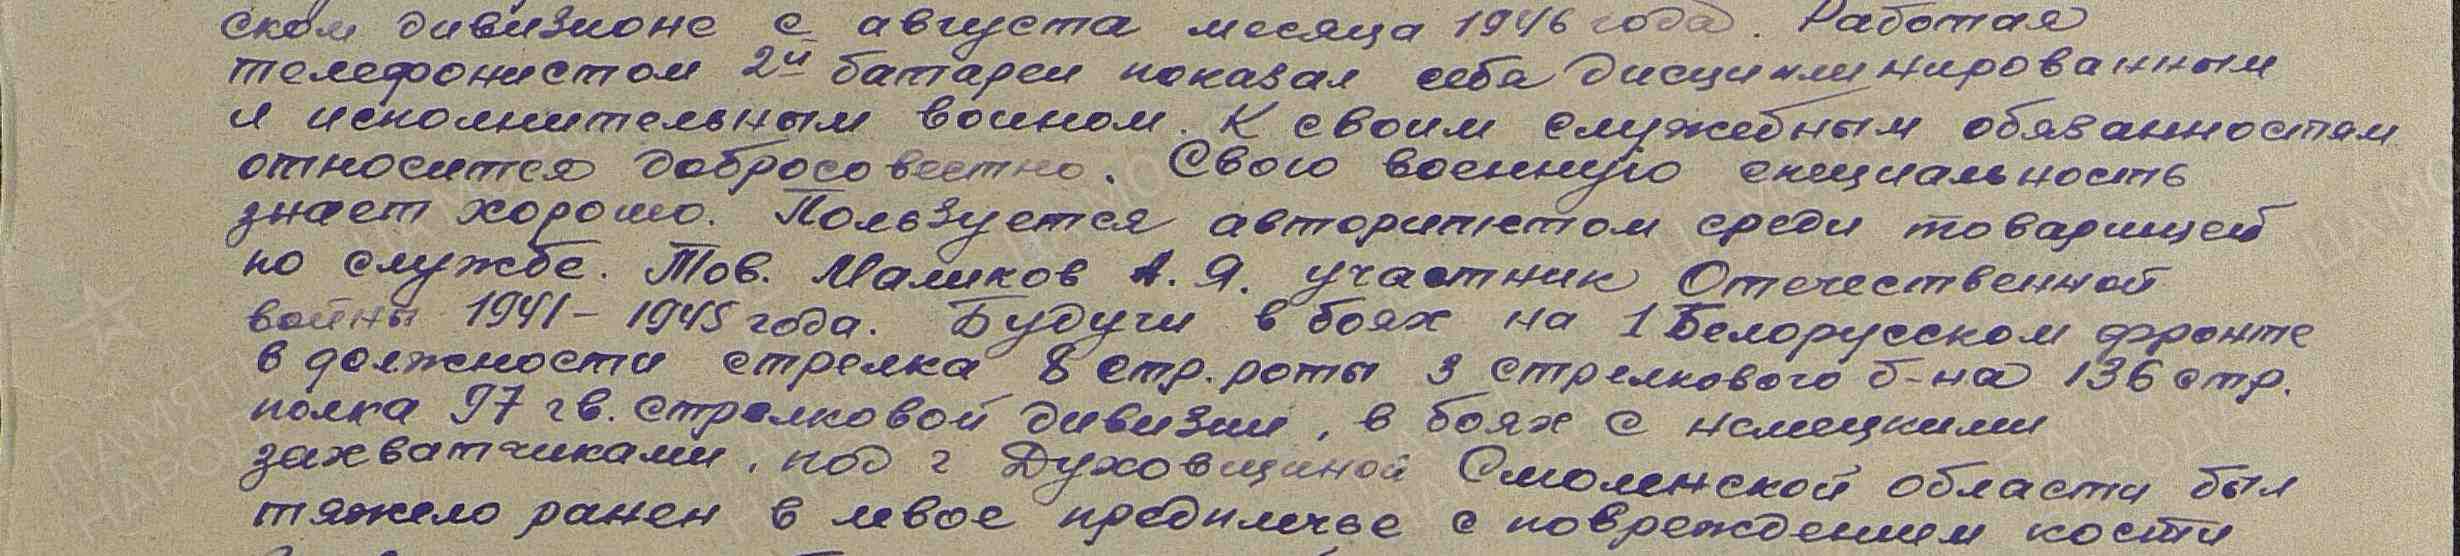 ском дивизионе с августа месяца 1946 года. Работая
телефонистом 2й батареи показал себя дисциплинированным
и исполнительным воином. К своим служебным обязанностям
относится добросовестно. Свою военную специальность
знает хорошо. Пользуется авторитетом среди товарищей
по службе. Тов. Маликов А. Я. участник Отечественной
войны 1941-1945 года. Будучи в боях на 1 Белорусском фронте
в должности стрелка 8 стр. роты 3 стрелкового б-на 136 стр.
полка 97 гв. стрелковой дивизии, в боях с немецкими
захватчиками, под г Духовщиной Смоленской области был
тяжело ранен в левое предплечье с повреждением кости